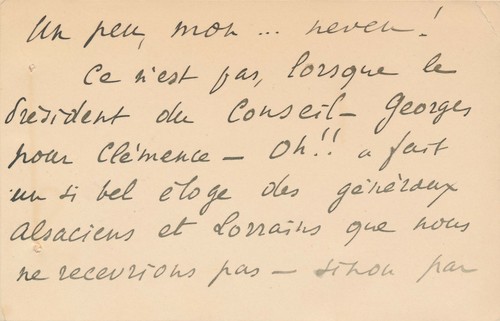 Un peu, mon ... neveu!
Ce n'est pas, lorsque le
Président du Conseil - Georges
pour Clémence - Oh!! a fait
un si bel éloge des généraux
Alsaciens et Lorrains que nous
ne recevrions pas - sinon par